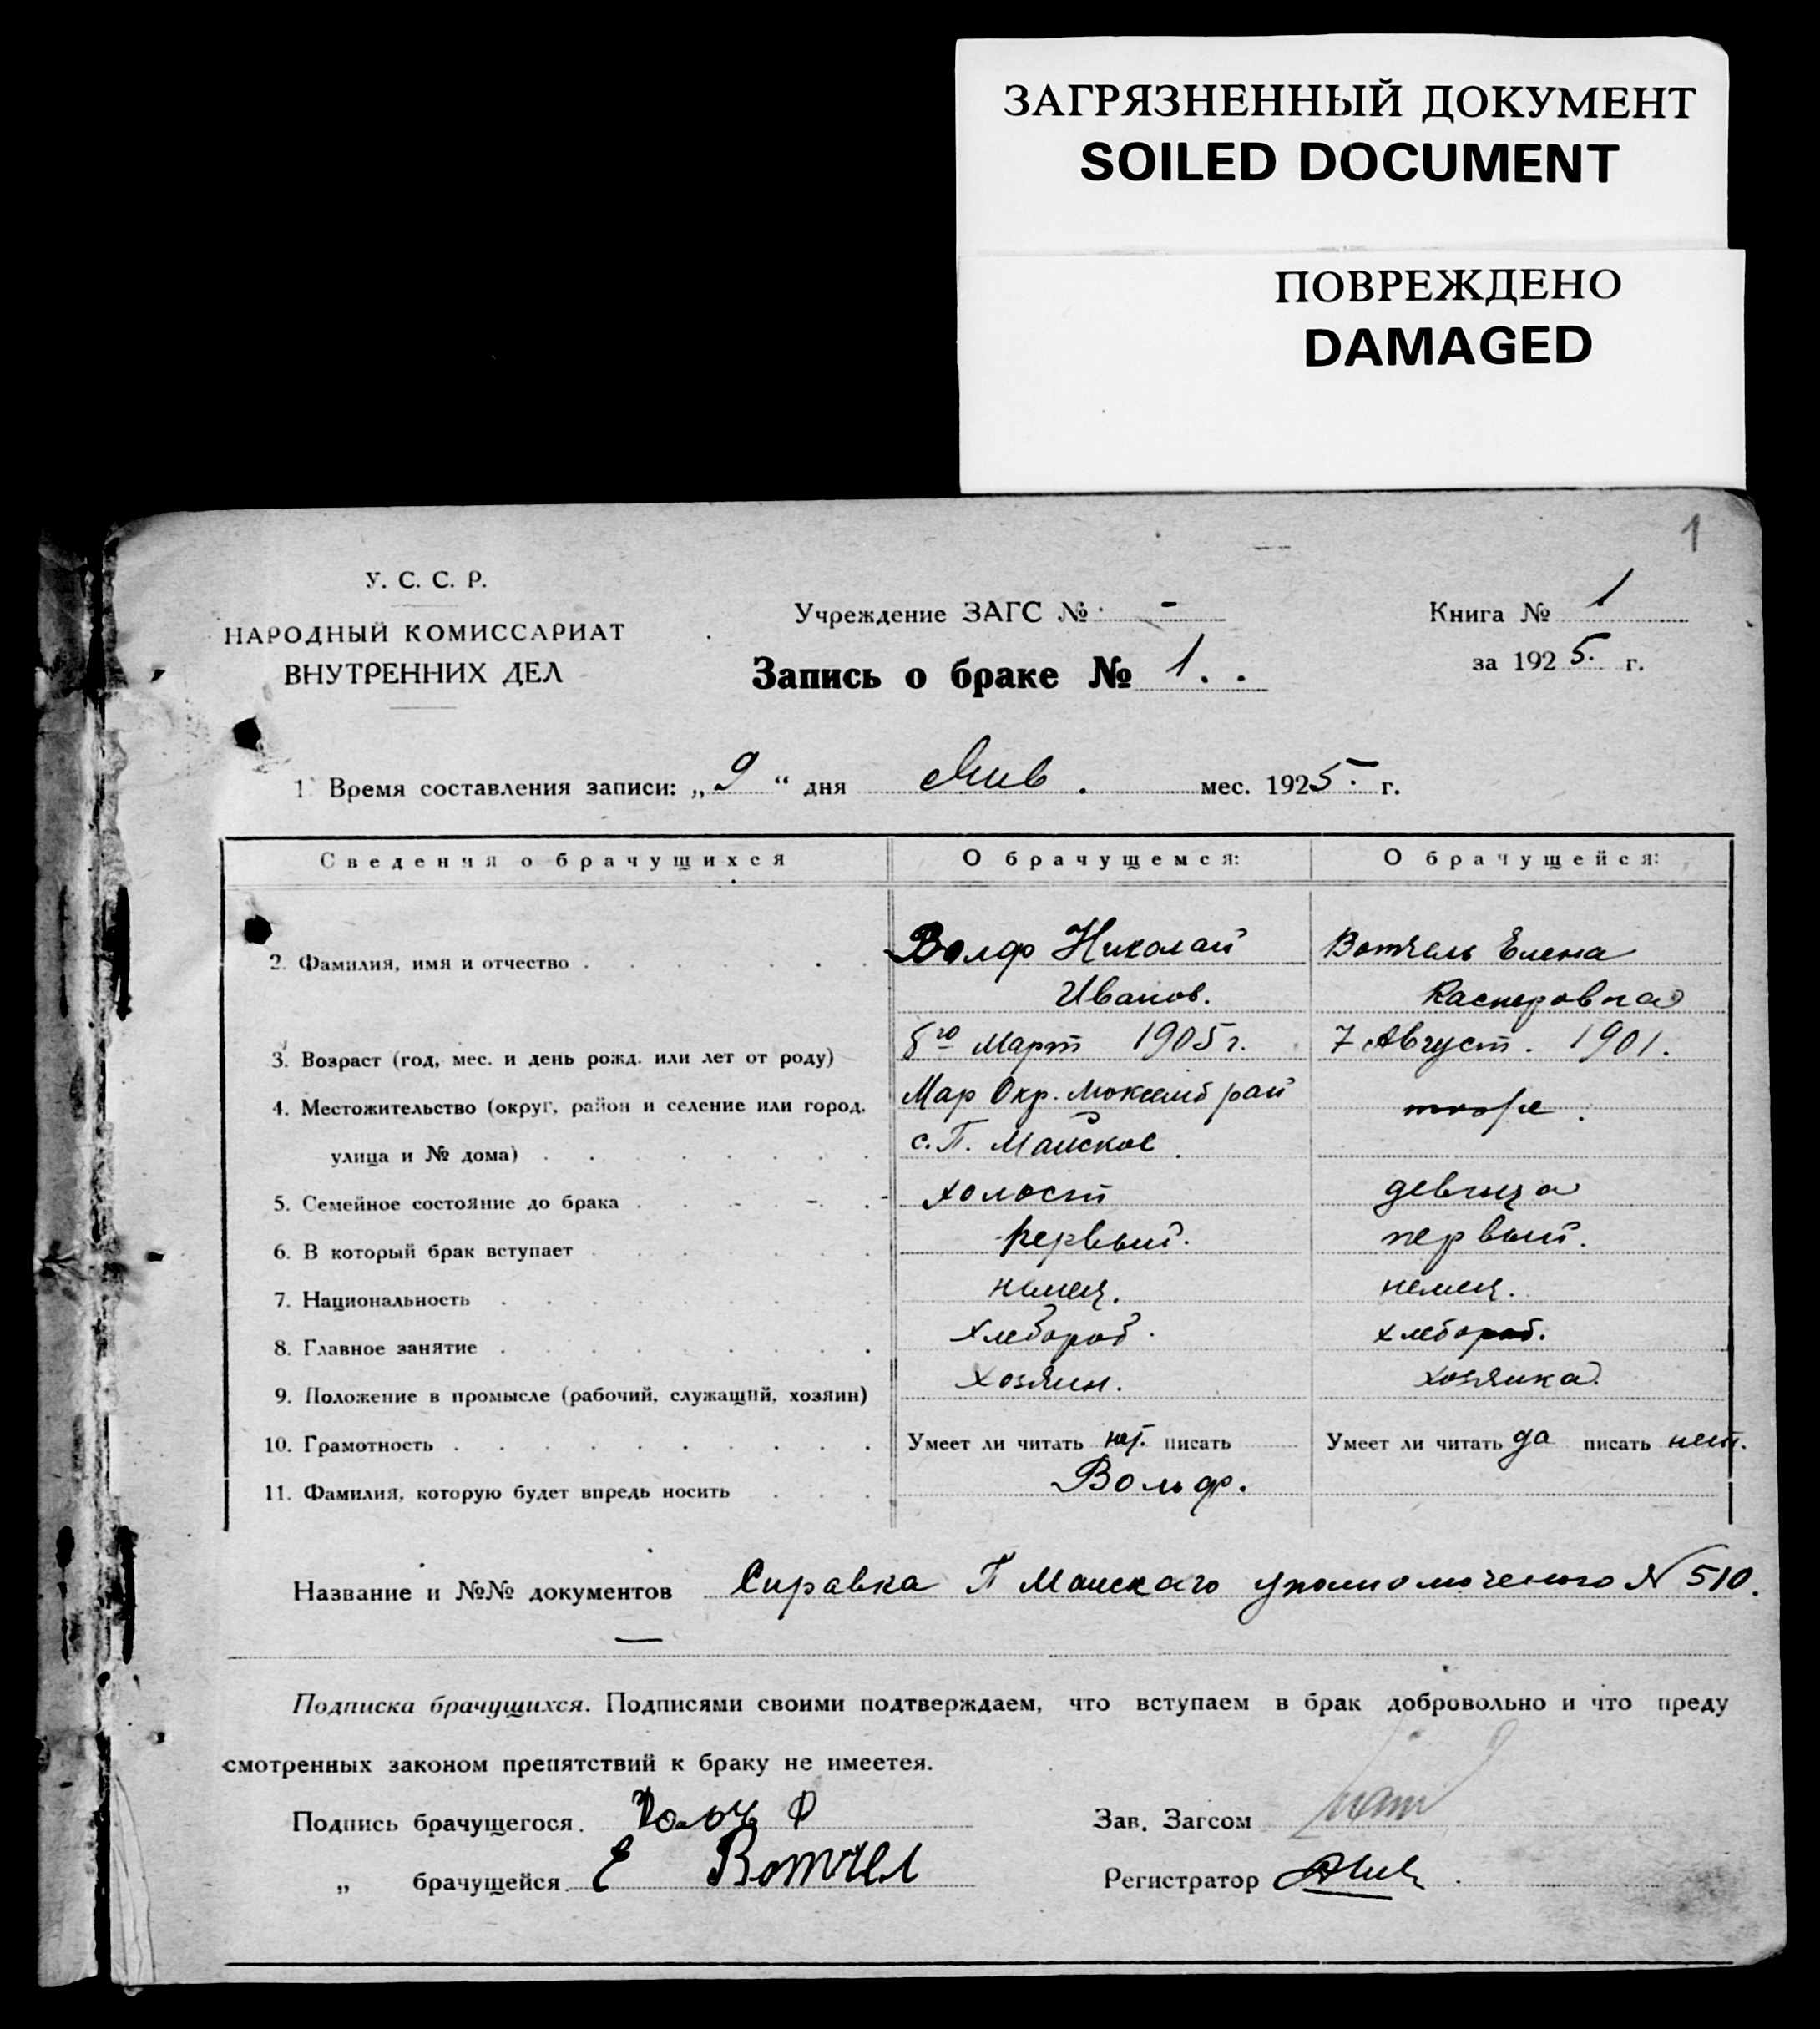 ЗАГРЯЗНЕННЫЙ ДОКУМЕНТ
SOILED DOCUMENT
ПОВРЕЖДЕНО
DAMAGED
1
У. С. С. Р.
НАРОДНЫЙ КОМИССАРИАТ
ВНУТРЕННИХ ДЕЛ
Учреждение ЗАГС № -
Книга № 1
Запись о браке № 1.
за 1925. г.
1. Время составления записи: „9“ дня Янв. мес. 1925. г.
Сведения о брачущихся О брачущемся: О брачущейся:
2. Фамилия, имя и отчество Волдф Николай Вотчель Елена
Иванов. Касперовна
3. Возраст (год, мес. и день рожд. или лет от роду) 8го Март 1905 г. 7 Август. 1901.
4. Местожительство (округ, район и селение или город, Мар Окр. рай тоже.
улица и № дома) с. П. Майское.
5. Семейное состояние до брака холост девица
6. В который брак вступает первый. первый.
7. Национальность немец. немец.
8. Главное занятие хлебороб. хлебороб.
9. Положение в промысле (рабочий, служащий, хозяин) хозяин. хозяйка.
10. Грамотность Умеет ли читать нет. писать Умеет ли читать да писать нет.
11. Фамилия, которую будет впредь носить Вольф.
Название и №№ документов Справка П Майскаго уполномоченого N 510.
Подписка брачущихся. Подписями своими подтверждаем, что вступаем в брак добровольно и что преду
смотренных законом препятствий к браку не имеетея.
Подпись брачущегося. Зав. Загсом
„ брачущейся. Е Вотчел Регистратор